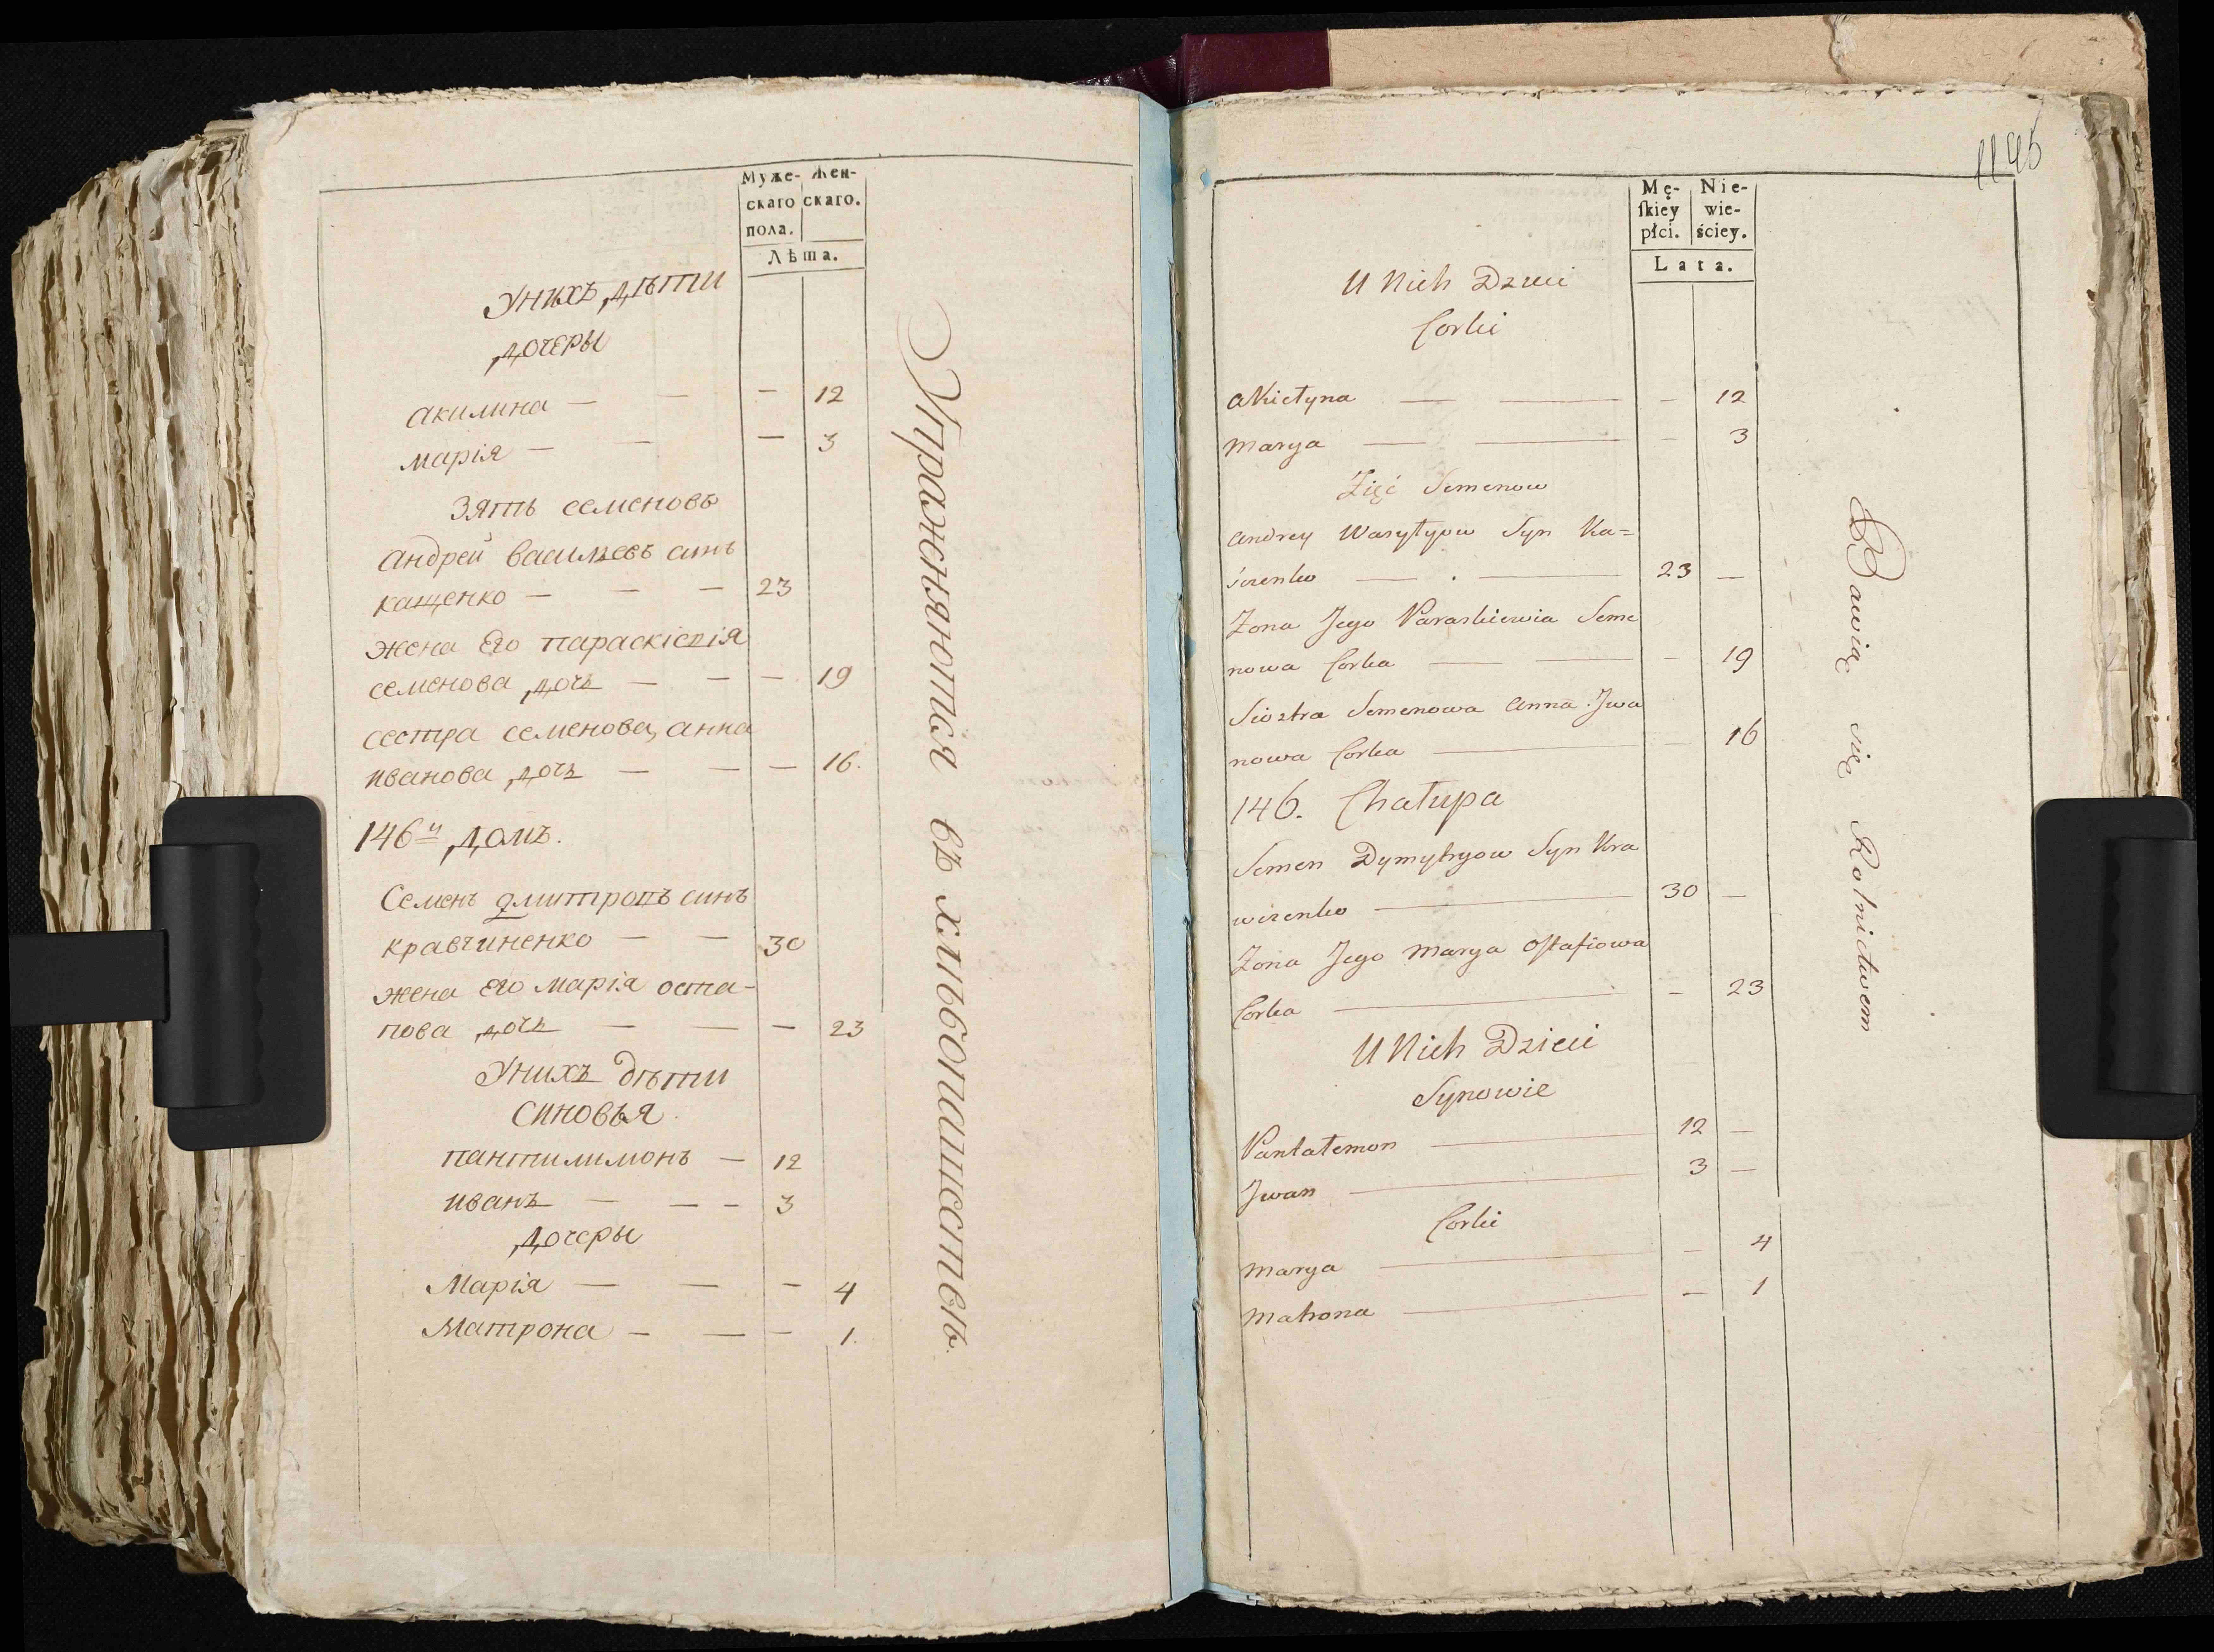 Муже- Жен-
скаго скаго.
пола.
Лѣта.
Унихъ дѣти
дочеры
акилина — — — 12
марія — — — 3
Зять семеновъ
андрей васильевъ синъ
кащенко — — — 23
жена Его параскіевія
семенова дочь — — — 19
сестра семенова, анна
иванова дочь — — — 16.
146й домъ.
Семенъ дмитровъ синъ
кравчиненко — — 30
жена Его марія оста-
пова дочь — — — 23
Унихъ дѣти
синовья
пантилимонъ — 12
иванъ — — — 3
дочеры
Марія — — — 4
Матрона — — — 1.
Упражняютса въ хлибопашествѣ.
1145
Mę- Nie-
skiey wie-
płci. ściey.
Lata.
U Nich Dzieci
Corki
Akiełyna — — — 12
Marya — — — 3
Zięć Semenow
Andrey Wasyłyow Syn Ka=
szenko — — 23 —
Zona Jego Paraskiewia Seme
nowa Corka — — — 19
Siostra Semenowa Anna Jwa
nowa Corka — — 16
146. Chałupa
Semen Dymytryow Syn Kra
wczenko — 30 —
Zona Jego Marya Ostafiowa
Corka — — 23
U Nich Dzieci
Synowie
Pantałemon — 12 —
Jwan — 3 —
Corki
Marya — — 4
Matrona — — 1
Bawią się Rolnictwem